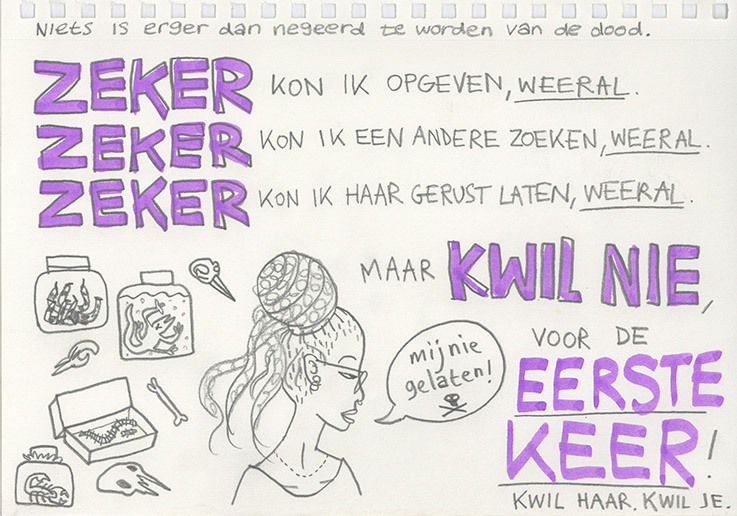 Niets is erger dan negeerd te worden van de dood.
ZEKER KON IK OPGEVEN, WEERAL.
ZEKER KON IK EEN ANDERE ZOEKEN, WEERAL.
ZEKER KON IK HAAR GERUST LATEN, WEERAL.
MAAR KWIL NIE,
VOOR DE
EERSTE
KEER!
KWIL HAAR. KWIL JE.
mij nie
gelaten!